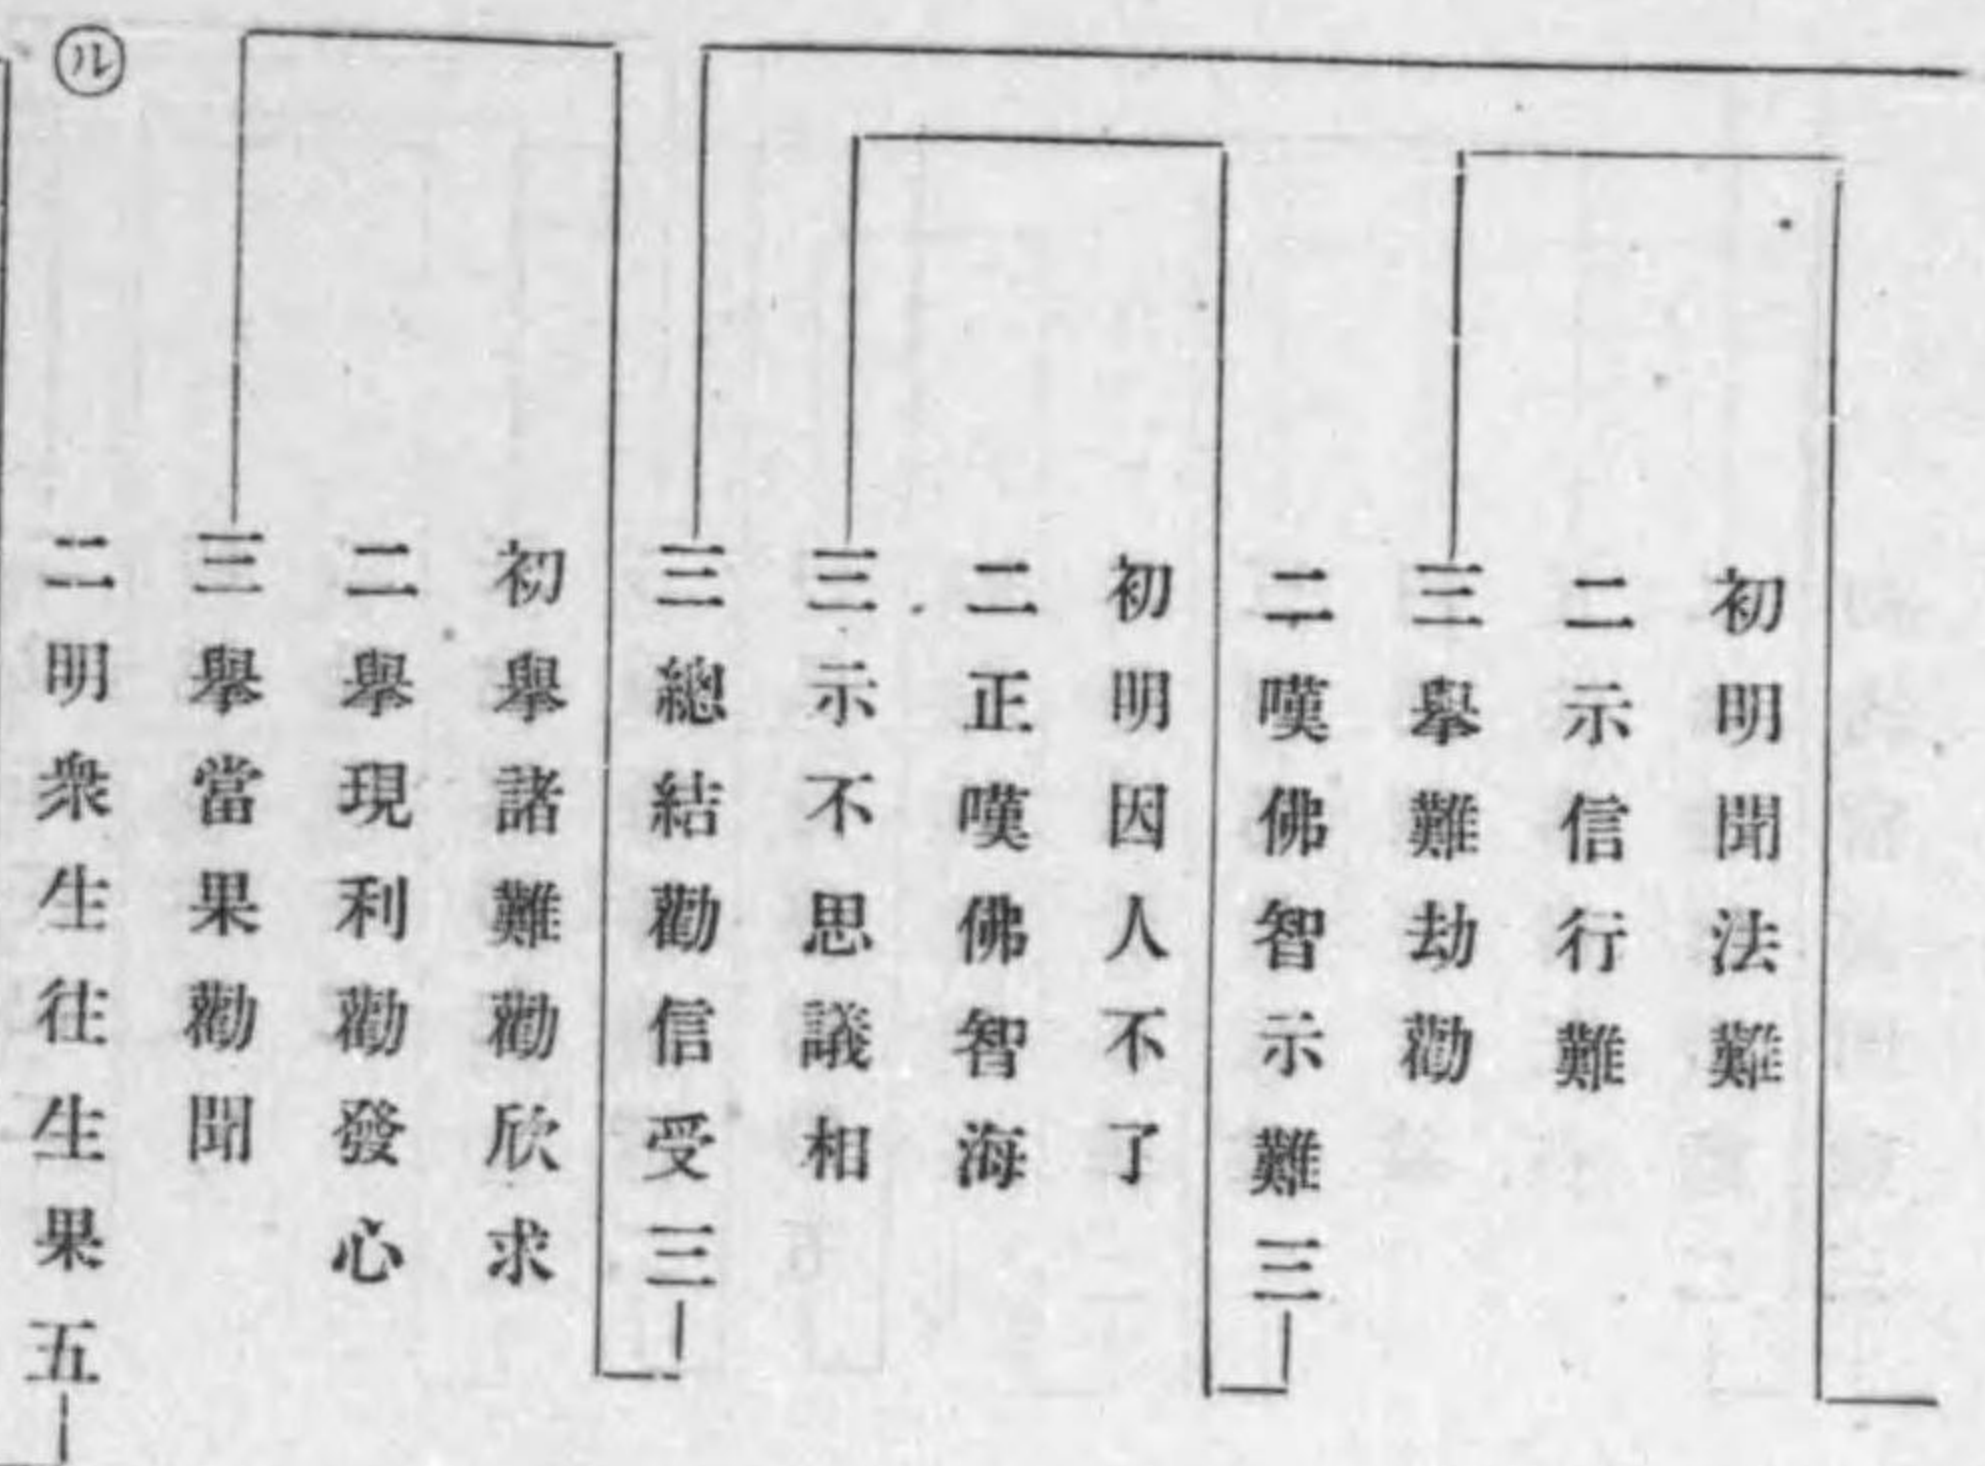 初明聞法難
二示信行難
三舉難劫勸
二嘆佛智示難三
初明因人不了
二正嘆佛智海
三示不思議相
三總結勸信受三
初舉諸難勸欣求
二舉現利勸發心
三舉當果勸聞
ル
二明衆生往生果五